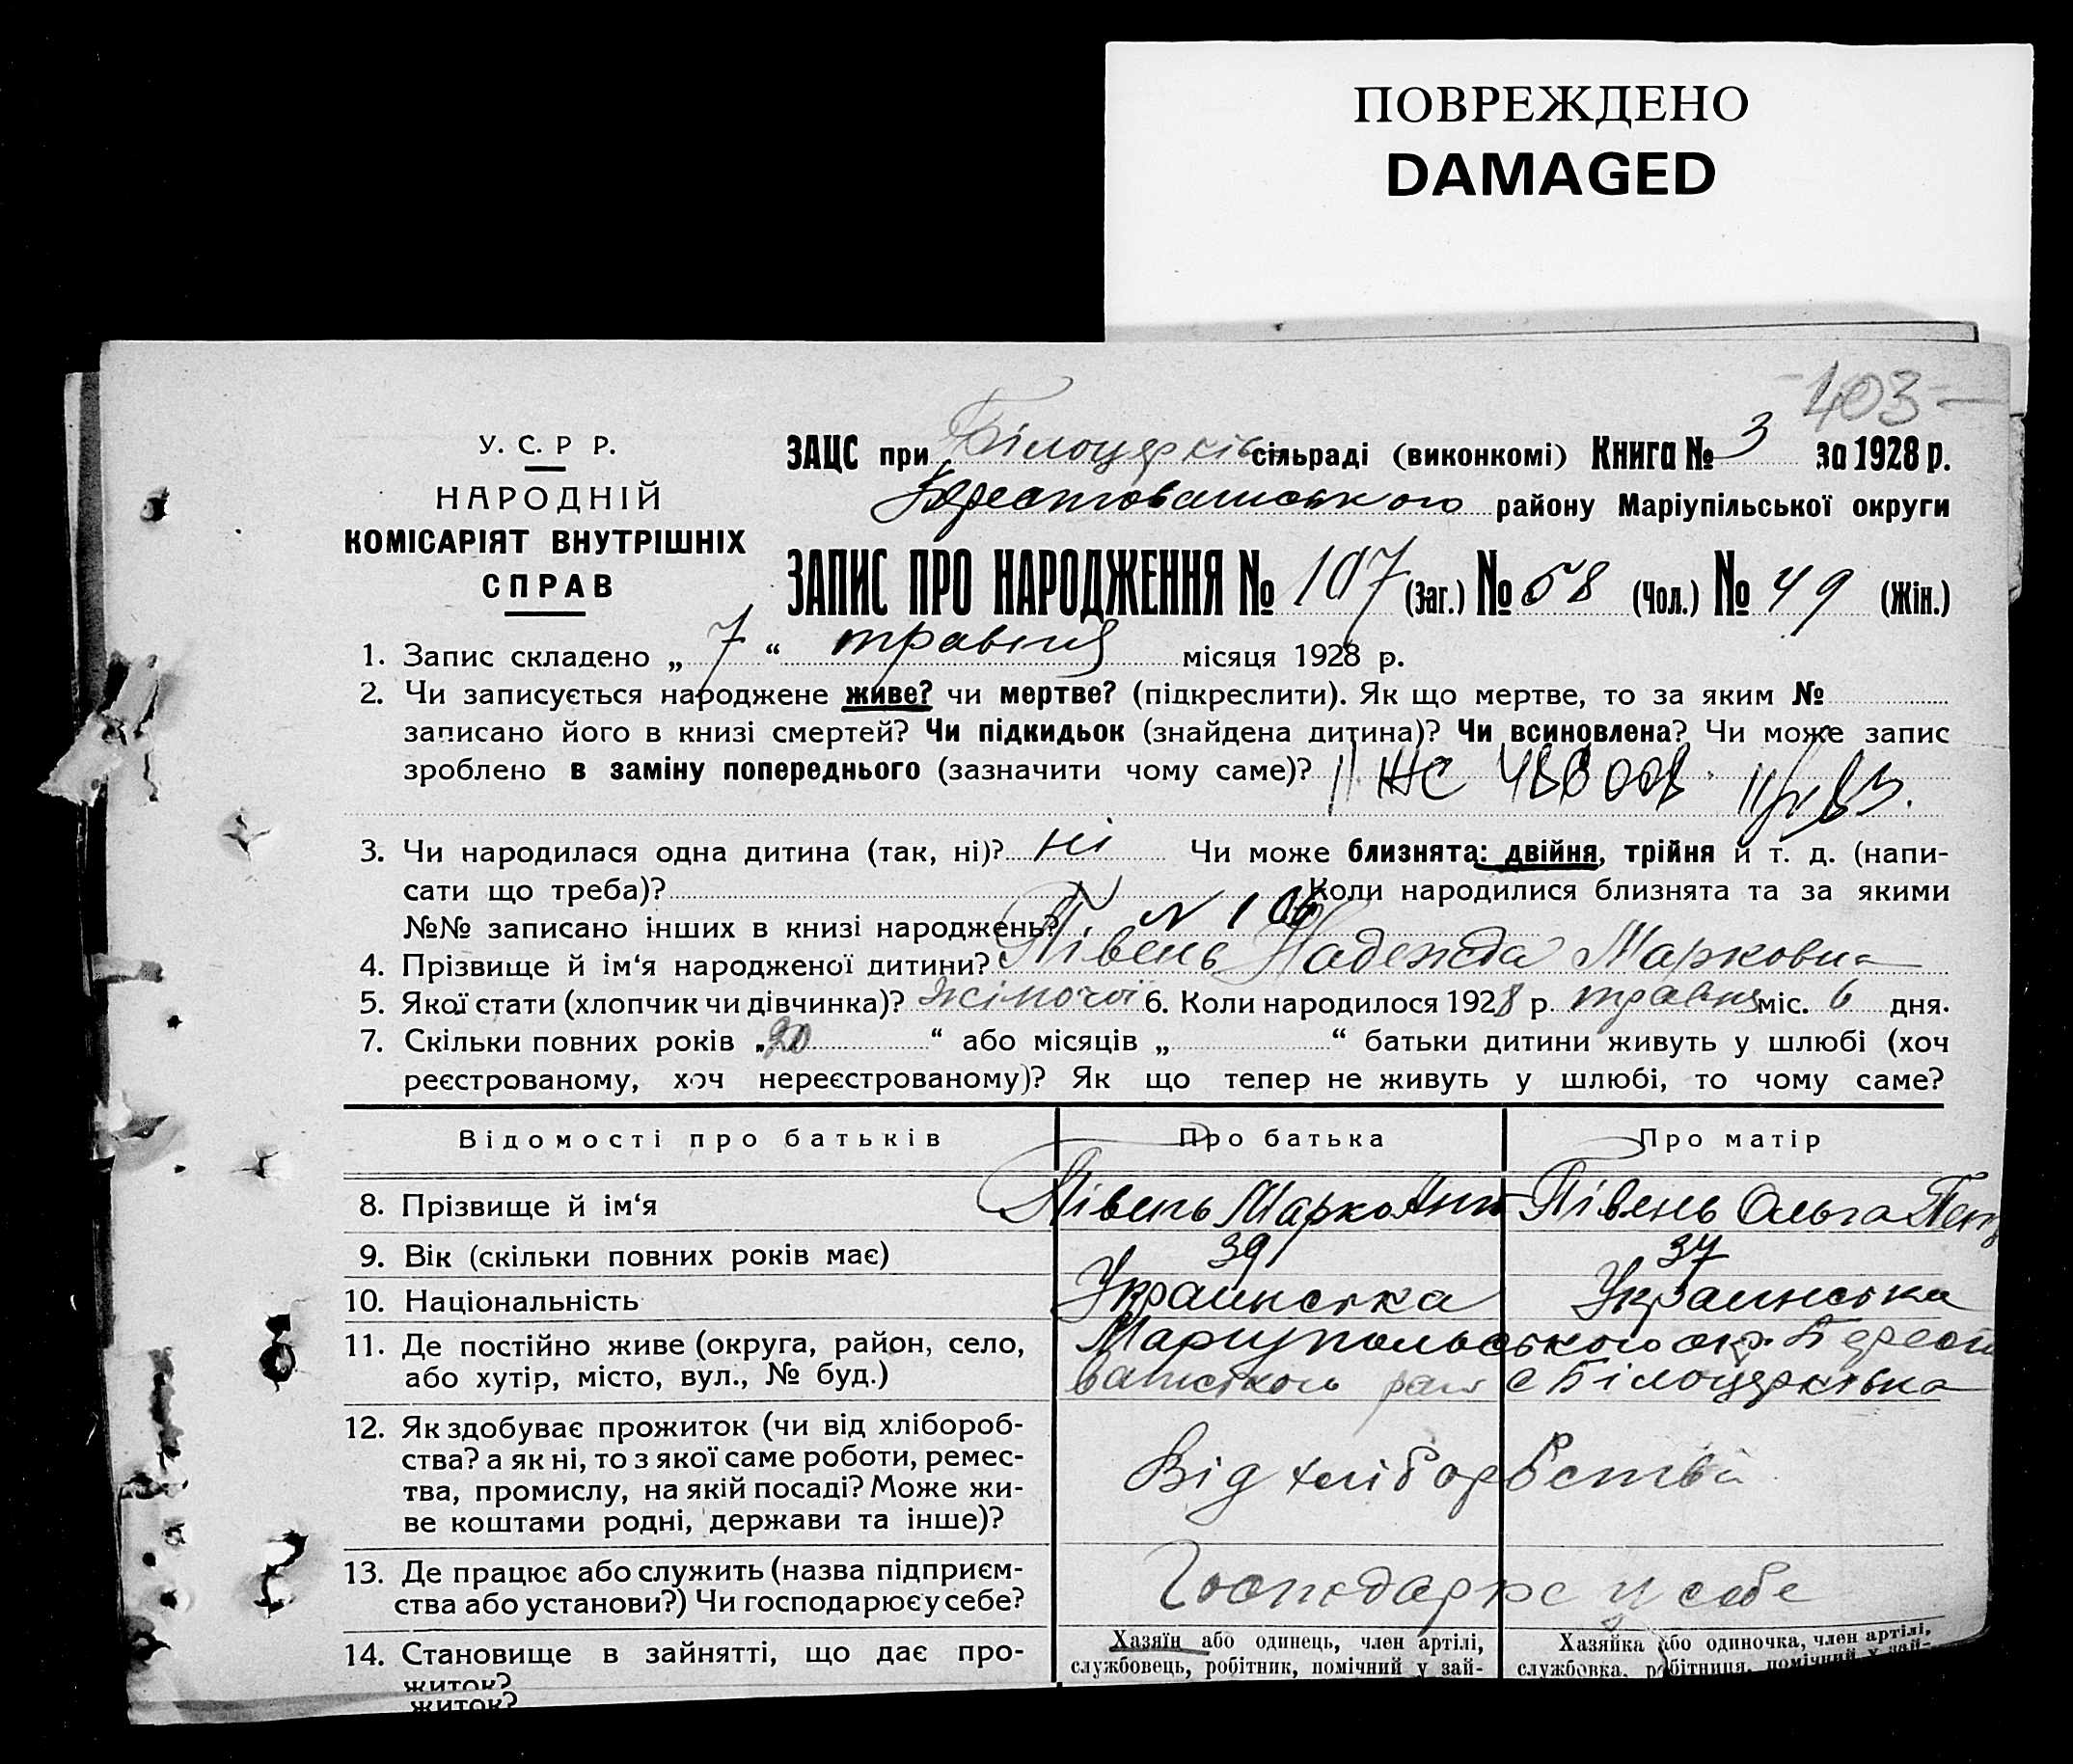 ПОВРЕЖДЕНО
DAMAGED
-403-
У. С. Р Р.
НАРОДНІЙ
КОМІСАРІЯТ ВНУТРІШНІХ
СПРАВ
ЗАЦС при Білоцерків сільраді (виконкомі) Книга № 3 за 1928 р.
Берестоватського району Маріупільської округи
ЗАПИС ПРО НАРОДЖЕННЯ № 107 (Заг.) № 58 (Чол.) № 49 (Жін.)
1. Запис складено „ 7 “ травня місяця 1928 р.
2. Чи записується народжене живе? чи мертве? (підкреслити). Як що мертве, то за яким №
записано його в книзі смертей? Чи підкидьок (знайдена дитина)? Чи всиновлена? Чи може запис
зроблено в заміну попереднього (зазначити чому саме)?
3. Чи народилася одна дитина (так, ні)? ні Чи може близнята: двійня, трійня й т. д. (напи-
сати що треба)? Коли народилися близнята та за якими
№№ записано інших в книзі народжень? N 106
4. Прізвище й ім‘я народженої дитини? Півень Надежда Марковна
5. Якої стати (хлопчик чи дівчинка)? жіночої 6. Коли народилося 1928 р. травня міс. 6 дня.
7. Скільки повних років „20 “ або місяців „ “ батьки дитини живуть у шлюбі (хоч
реєстрованому, хоч нереєстрованому)? Як що тепер не живуть у шлюбі, то чому саме?
Відомості про батьків Про батька Про матір
8. Прізвище й ім‘я Півень Марко Півень Ольга
9. Вік (скільки повних років має) 39 37
10. Національність Украинська Украинська
11. Де постійно живе (округа, район, село, Мариупольського окр. Берест
або хутір, місто, вул., № буд.) ватського с Білоцерківка
12. Як здобуває прожиток (чи від хлібороб-
ства? а як ні, то з якої саме роботи, ремес-
тва, промислу, на якій посаді? Може жи- Від хліборобства
ве коштами родні, держави та інше)?
13. Де працює або служить (назва підприєм-
ства або установи?) Чи господарює у себе? Господарює у себе
14. Становище в зайнятті, що дає про- Хазяїн або одинець, член артілі, Хазяйка або одиночка, член артілі,
житок? службовець, робітник, помічний у зай- службовка, робітниця, помічний у зай-
житок?